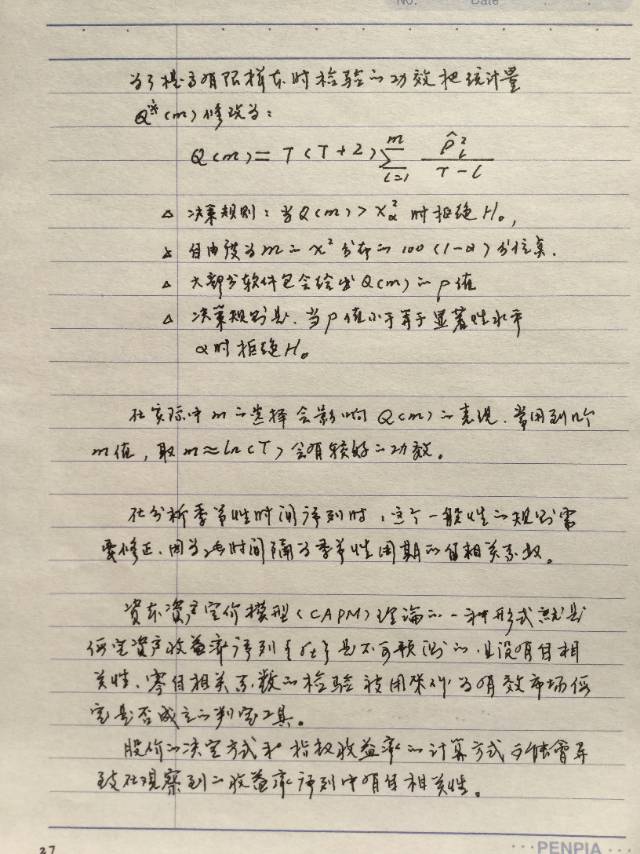 No. Date
为了提高有限样本时检验的功效把统计量
Q*(m)修改为:
Q(m) = T(T+2) \sum_{l=1}^{m} \frac{\hat{ρ}_l^2}{T-l}
△ 决策规则:当Q(m) > χ_α^2 时拒绝H₀,
△ 自由度为m的χ²分布的100(1-α)分位点.
△ 大部分软件包会给出Q(m)的p值
△ 决策规则是.当p值小于等于显著性水平
α时拒绝H₀。
在实际中m的选择会影响Q(m)的表现.常用到几个
m值,取m≈ln(T)会有较好的功效。
在分析季节性时间序列时,这个一般性的规则需
要修正.因为此时间隔为季节性周期的自相关系数。
资本资产定价模型(CAPM)理论的一种形式就是
假定资产收益率序列{rt}是不可预测的.且没有自相
关性.零自相关系数的检验被用来作为有效市场假
定是否成立的判定工具。
股价的决定方式和指数收益率的计算方式可能会导
致在观察到的收益率序列中有自相关性。
37
···PENPIA···